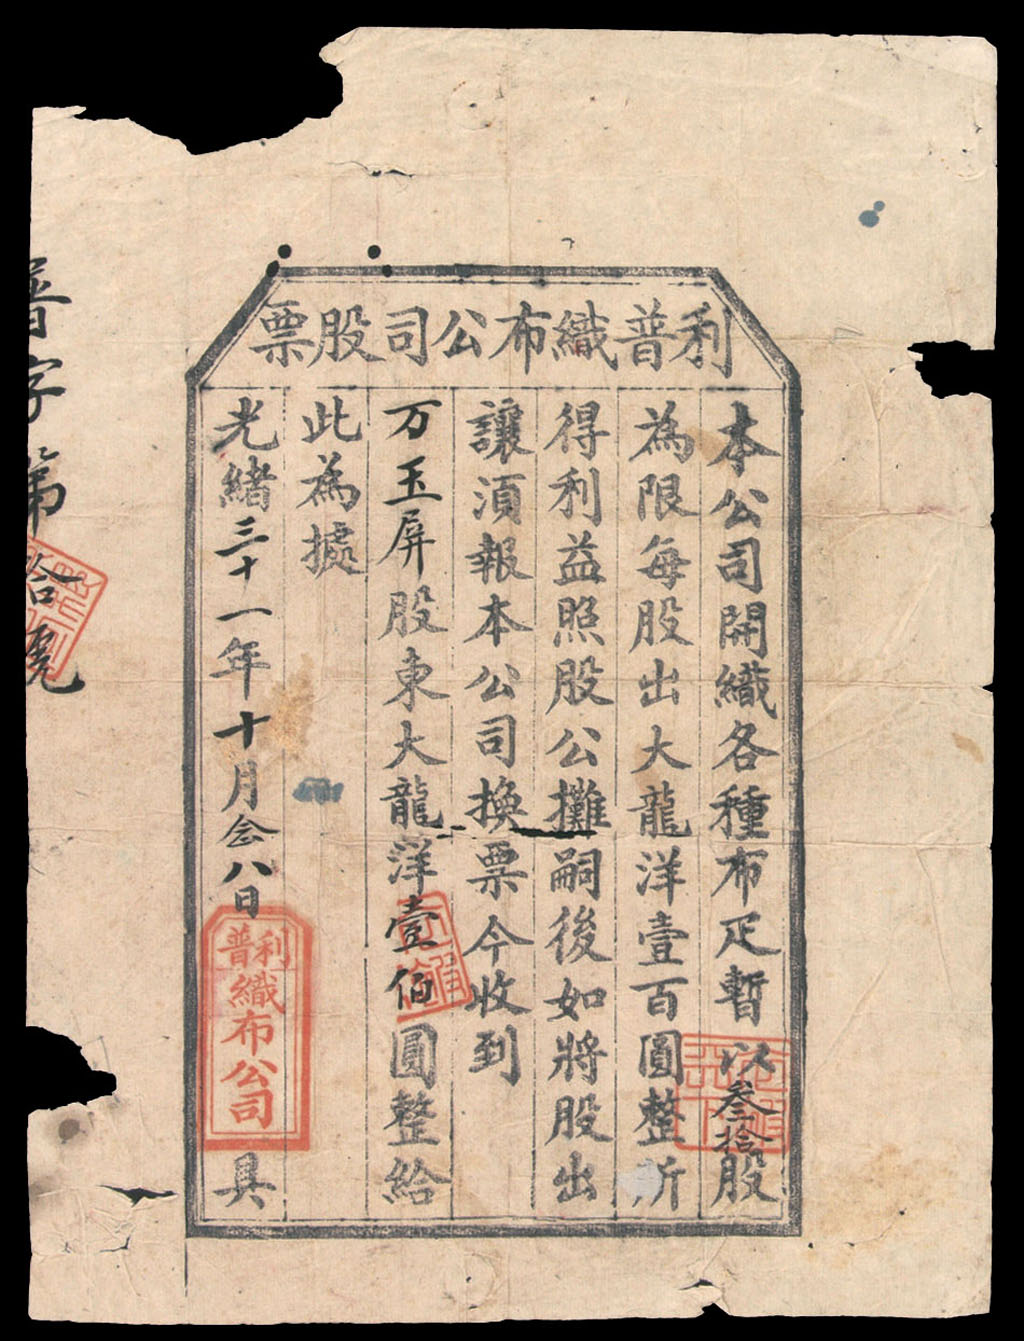 利普織布公司股票
本公司開織各種布疋暫以叁拾股
為限每股出大龍洋壹百圓整所
得利益照股公攤嗣後如將股出
讓湏報本公司換票今收到
万玉屏股東大龍洋壹伯圓整給
此為據
光緒三十一年十月念八日
利普織布公司
具
普字第拾號